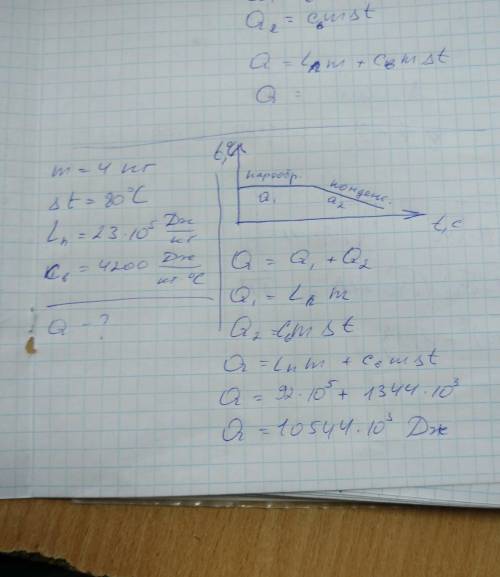 Q₂ = cвmΔt
Q = Lпm + cвmΔt
Q =
m = 4 кг
Δt = 80°C
Lп = 23·10⁵ Дж/кг
cв = 4200 Дж/кг °C
Q - ?
t,°C
парообр.
конденс.
Q₁
Q₂
t, c
Q = Q₁ + Q₂
Q₁ = Lп m
Q₂ = cвm Δt
Q = Lп m + cвmΔt
Q = 92·10⁵ + 1344·10³
Q = 10544·10³ Дж